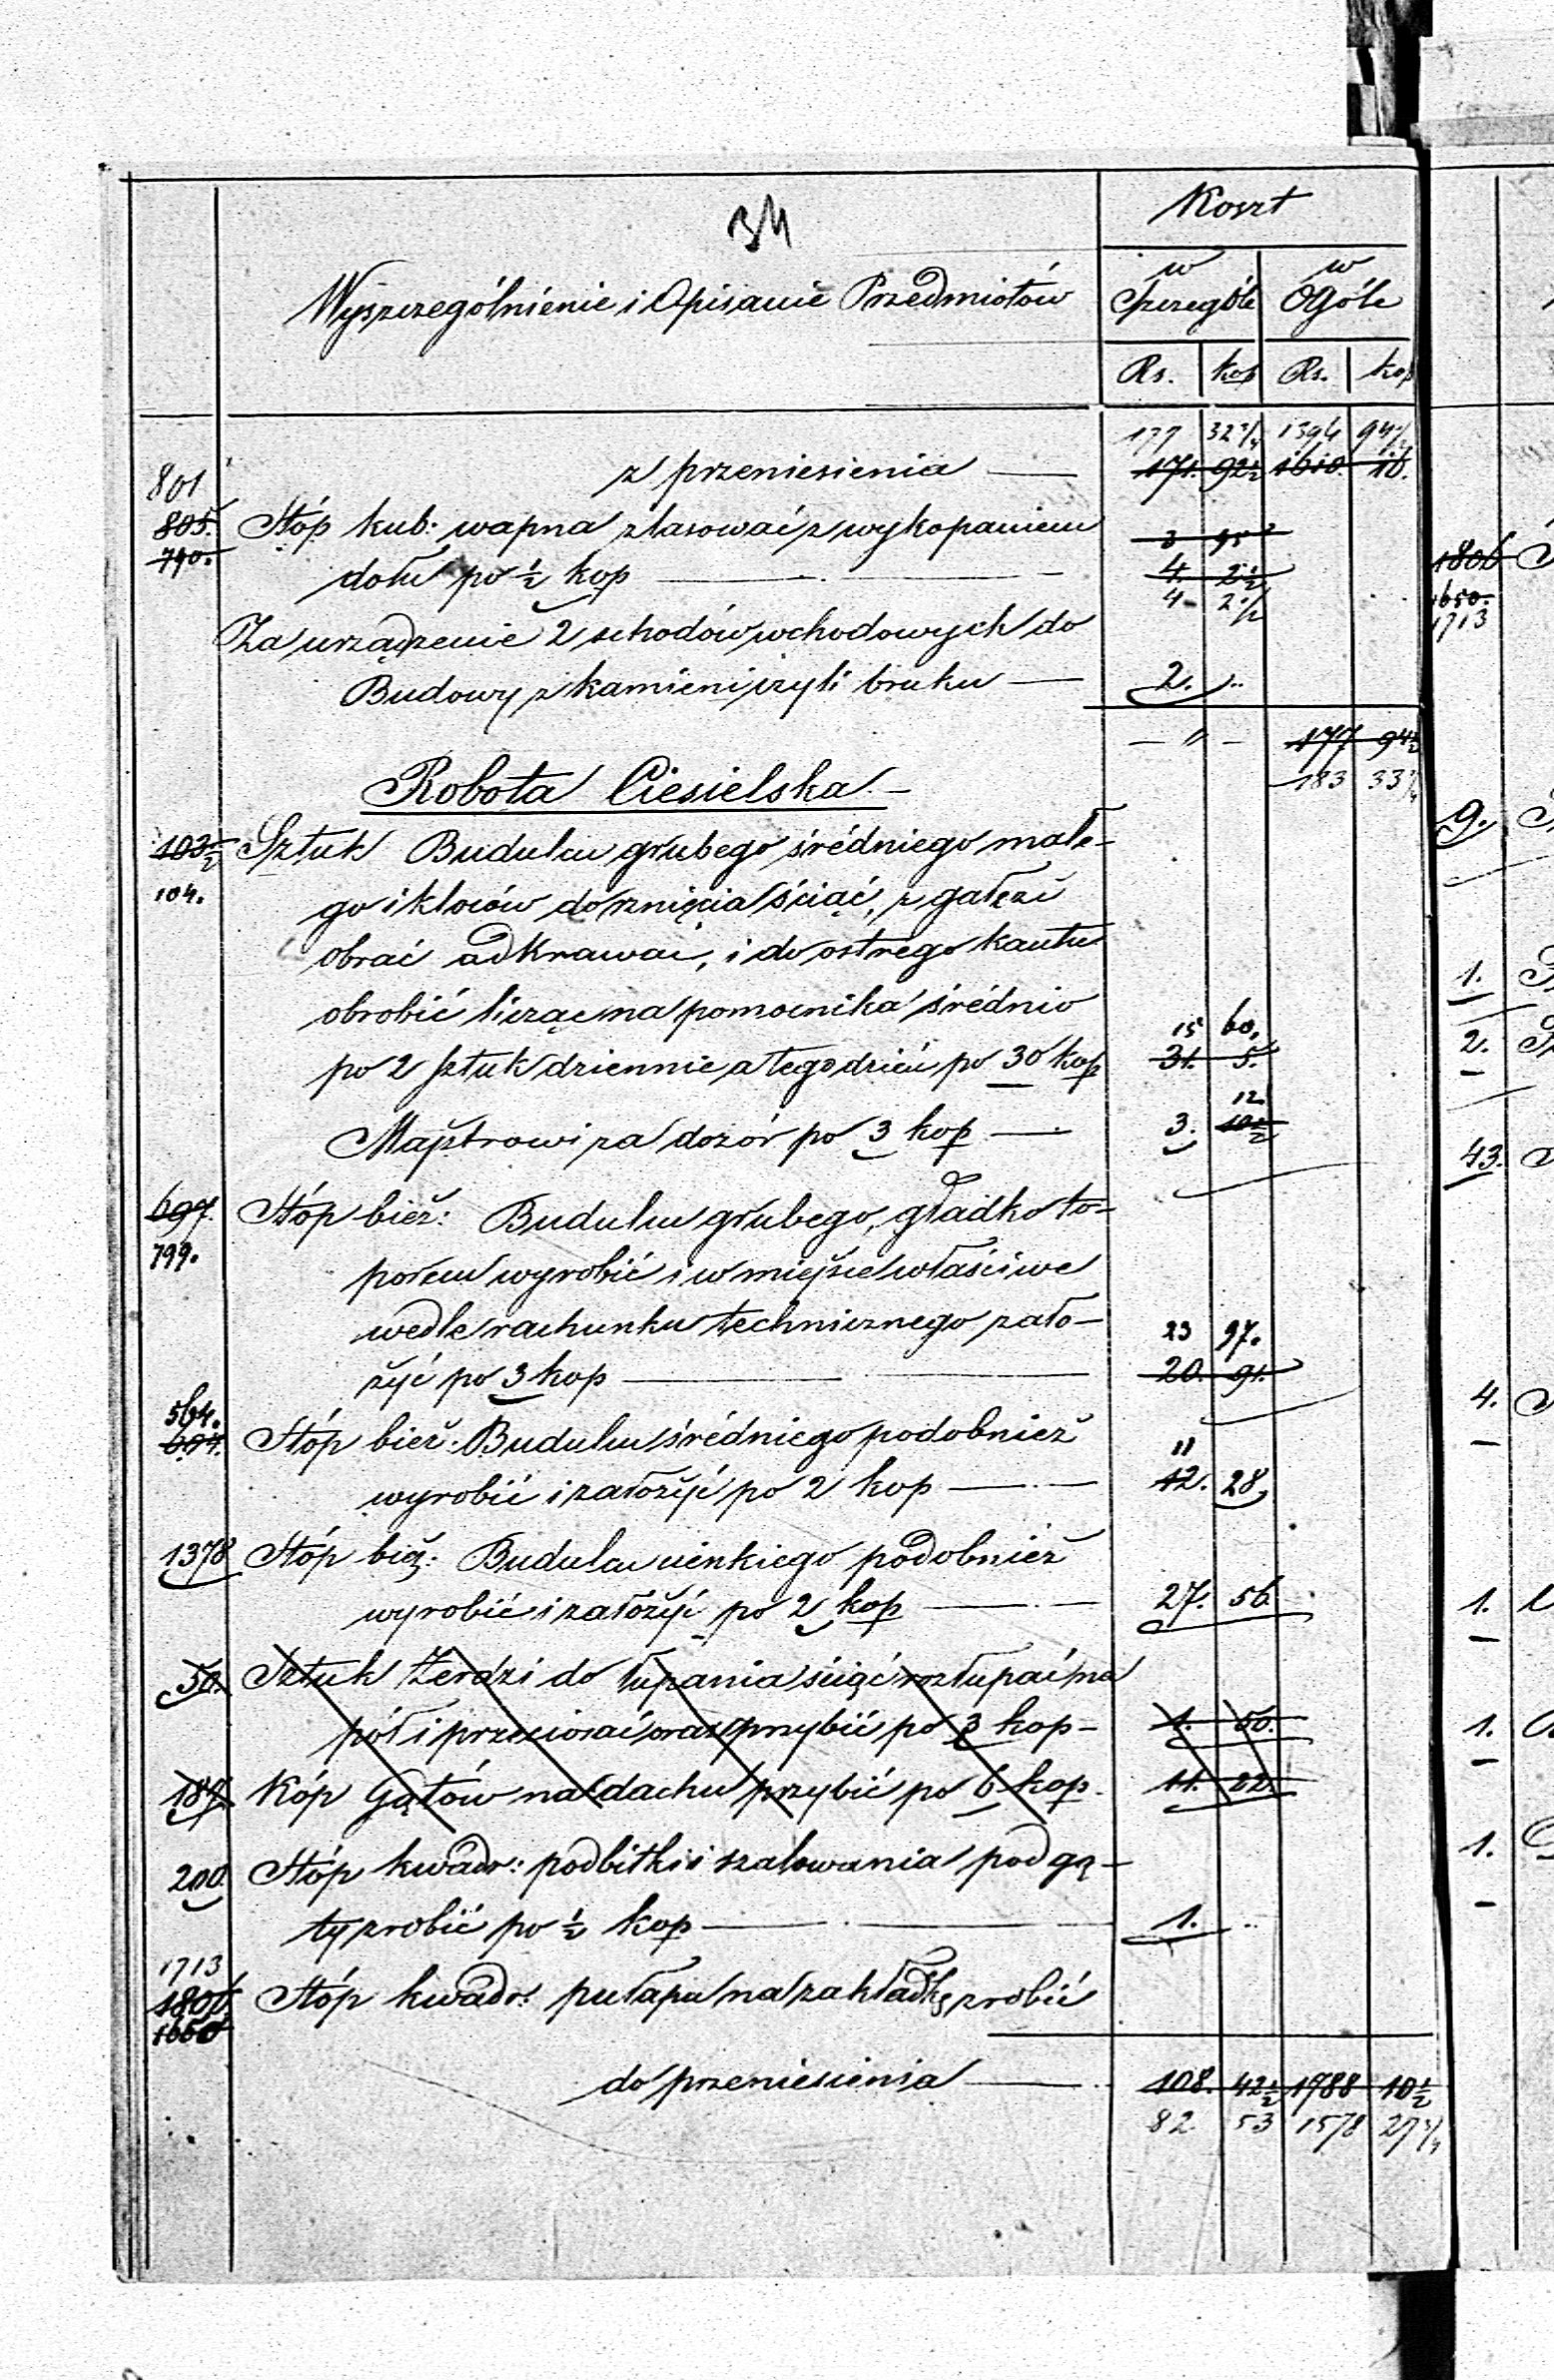 34
Koszt
Wyszczególnienie i Opisanie Przedmiotów
w Szczególe
w Ogóle
Rs. kop Rs. kop
177 32 3/4 1394 94 1/2
801 z przeniesienia — 171. 92 1/2 1610. 16.
805. Stóp kub: wapna zlasować z wykopaniem 3 95
790. dołu po 1/2 kop — 4. 2 1/2
4 - 2 1/2
Za urządzenie 2 schodów wchodowych do
Budowy z kamieni czyli bruku — 2. ..
— " — 177 94 1/2
183 33 3/4
Robota Ciesielska. —
103 1/2 Sztuk Budulcu grubego średniego małe-
104. go i kloców do rznięcia ściąć, z gałęzi
obrać odkrawać, i do ostrego kantu
obrobić licząc na pomocnika średnio 15 60.
po 2 sztuk dziennie a tego dzień po 30 kop 31. 5.
12
Majstrowi za dozór po 3 kop — 3. 10 1/2
697. Stóp bież: Budulcu grubego, gładko to-
799. porem wyrobić i w miejsce właściwe
wedle rachunku technicznego zało- 23 97.
żyć po 3 kop — 20. 91.
564.
604. Stóp bież: Budulcu średniego podobnież 11
wyrobić i założyć po 2 kop — 12. 28
1378 Stóp bież: Budulcu cienkiego podobnież
wyrobić i założyć po 2 kop — 27. 56.
50. Sztuk Żerdzi do łupania ściąć rozłupać na
pół i przeciosać oraz przybić po 3 kop — 1. 50.
187 Kóp Gątów na dachu przybić po 6 kop. 11. 22.
200 Stóp kwadr: podbitki i szalowania pod gą-
ty zrobić po 1/2 kop — 1. ..
1713
1806. Stóp kwadr: pułapu na zakładkę zrobić
1650
do przeniesienia — 108. 42 1/2 1788 10 1/2
82. 53 1578 27 3/4
1806
1650.
1713
9.
1.
2.
43.
4.
1.
1.
1.